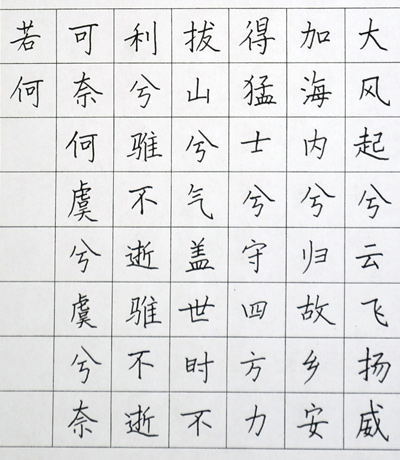 大风起兮云飞扬威
加海内兮归故乡安
得猛士兮守四方力
拔山兮气盖世时不
利兮骓不逝骓不逝
可奈何虞兮虞兮奈
若何